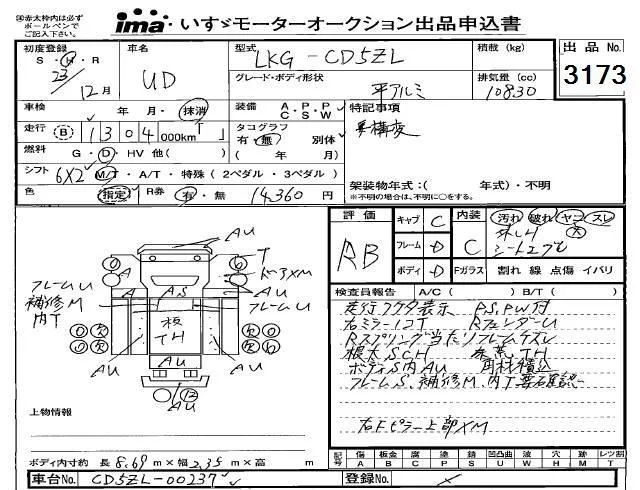 ㊟赤太枠内は必ず
ボールペンで
ご記入下さい。
ima・いすゞモーターオークション出品申込書
初度登録
S・H・R
23
12月
車名
UD
型式
LKG-CD5ZL
積載(kg)
出品No.
3173
グレード・ボディ形状
平アルミ
排気量(cc)
10830
車検
年 月・抹消
装備 A・P・P
C・S・W
特記事項
走行 B 1304 000km T
タコグラフ
有・無 別体
(年 月)
燃料 G・D・HV 他( )
シフト 6X2 M/T・A/T・特殊(2ペダル・3ペダル)
架装物年式:( 年式)・不明
※不明の場合は、不明に○をする。
色 指定 R券 有・無 14,360 円
評価 RB
キャブ C
フレーム D
ボディ D
内装 C
汚れ 破れ ヤコ スレ
大
Fガラス 割れ 線 点傷 イバリ
検査員報告 A/C( ) B/T( )
PS,PW付
右ミラーココT RフェンダーU
根太SCH 床荒TH
ボディS内AU 角材積込
フレームS、補修M、内T
右FピラーエXM
AU
T
ドーアXM
フレームU
補修M
内T
A
AS
AU
板
TH
AU
AU
上物情報
ボディ内寸約 長 8.69 m×幅 2.35 m×高 m
記号 傷 板金 腐 塗 錆 凹凸曲 波 穴 跡 レツ割
A B C P S U W H M T
車台No. CD5ZL-00237
登録No.